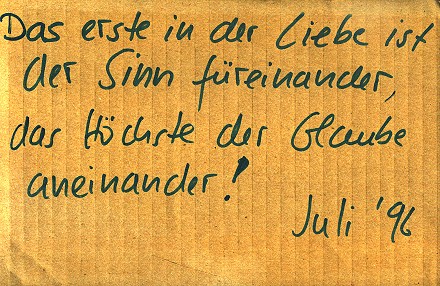 Das erste in der Liebe ist
der Sinn füreinander,
das Höchste der Glaube
aneinander!
Juli '96